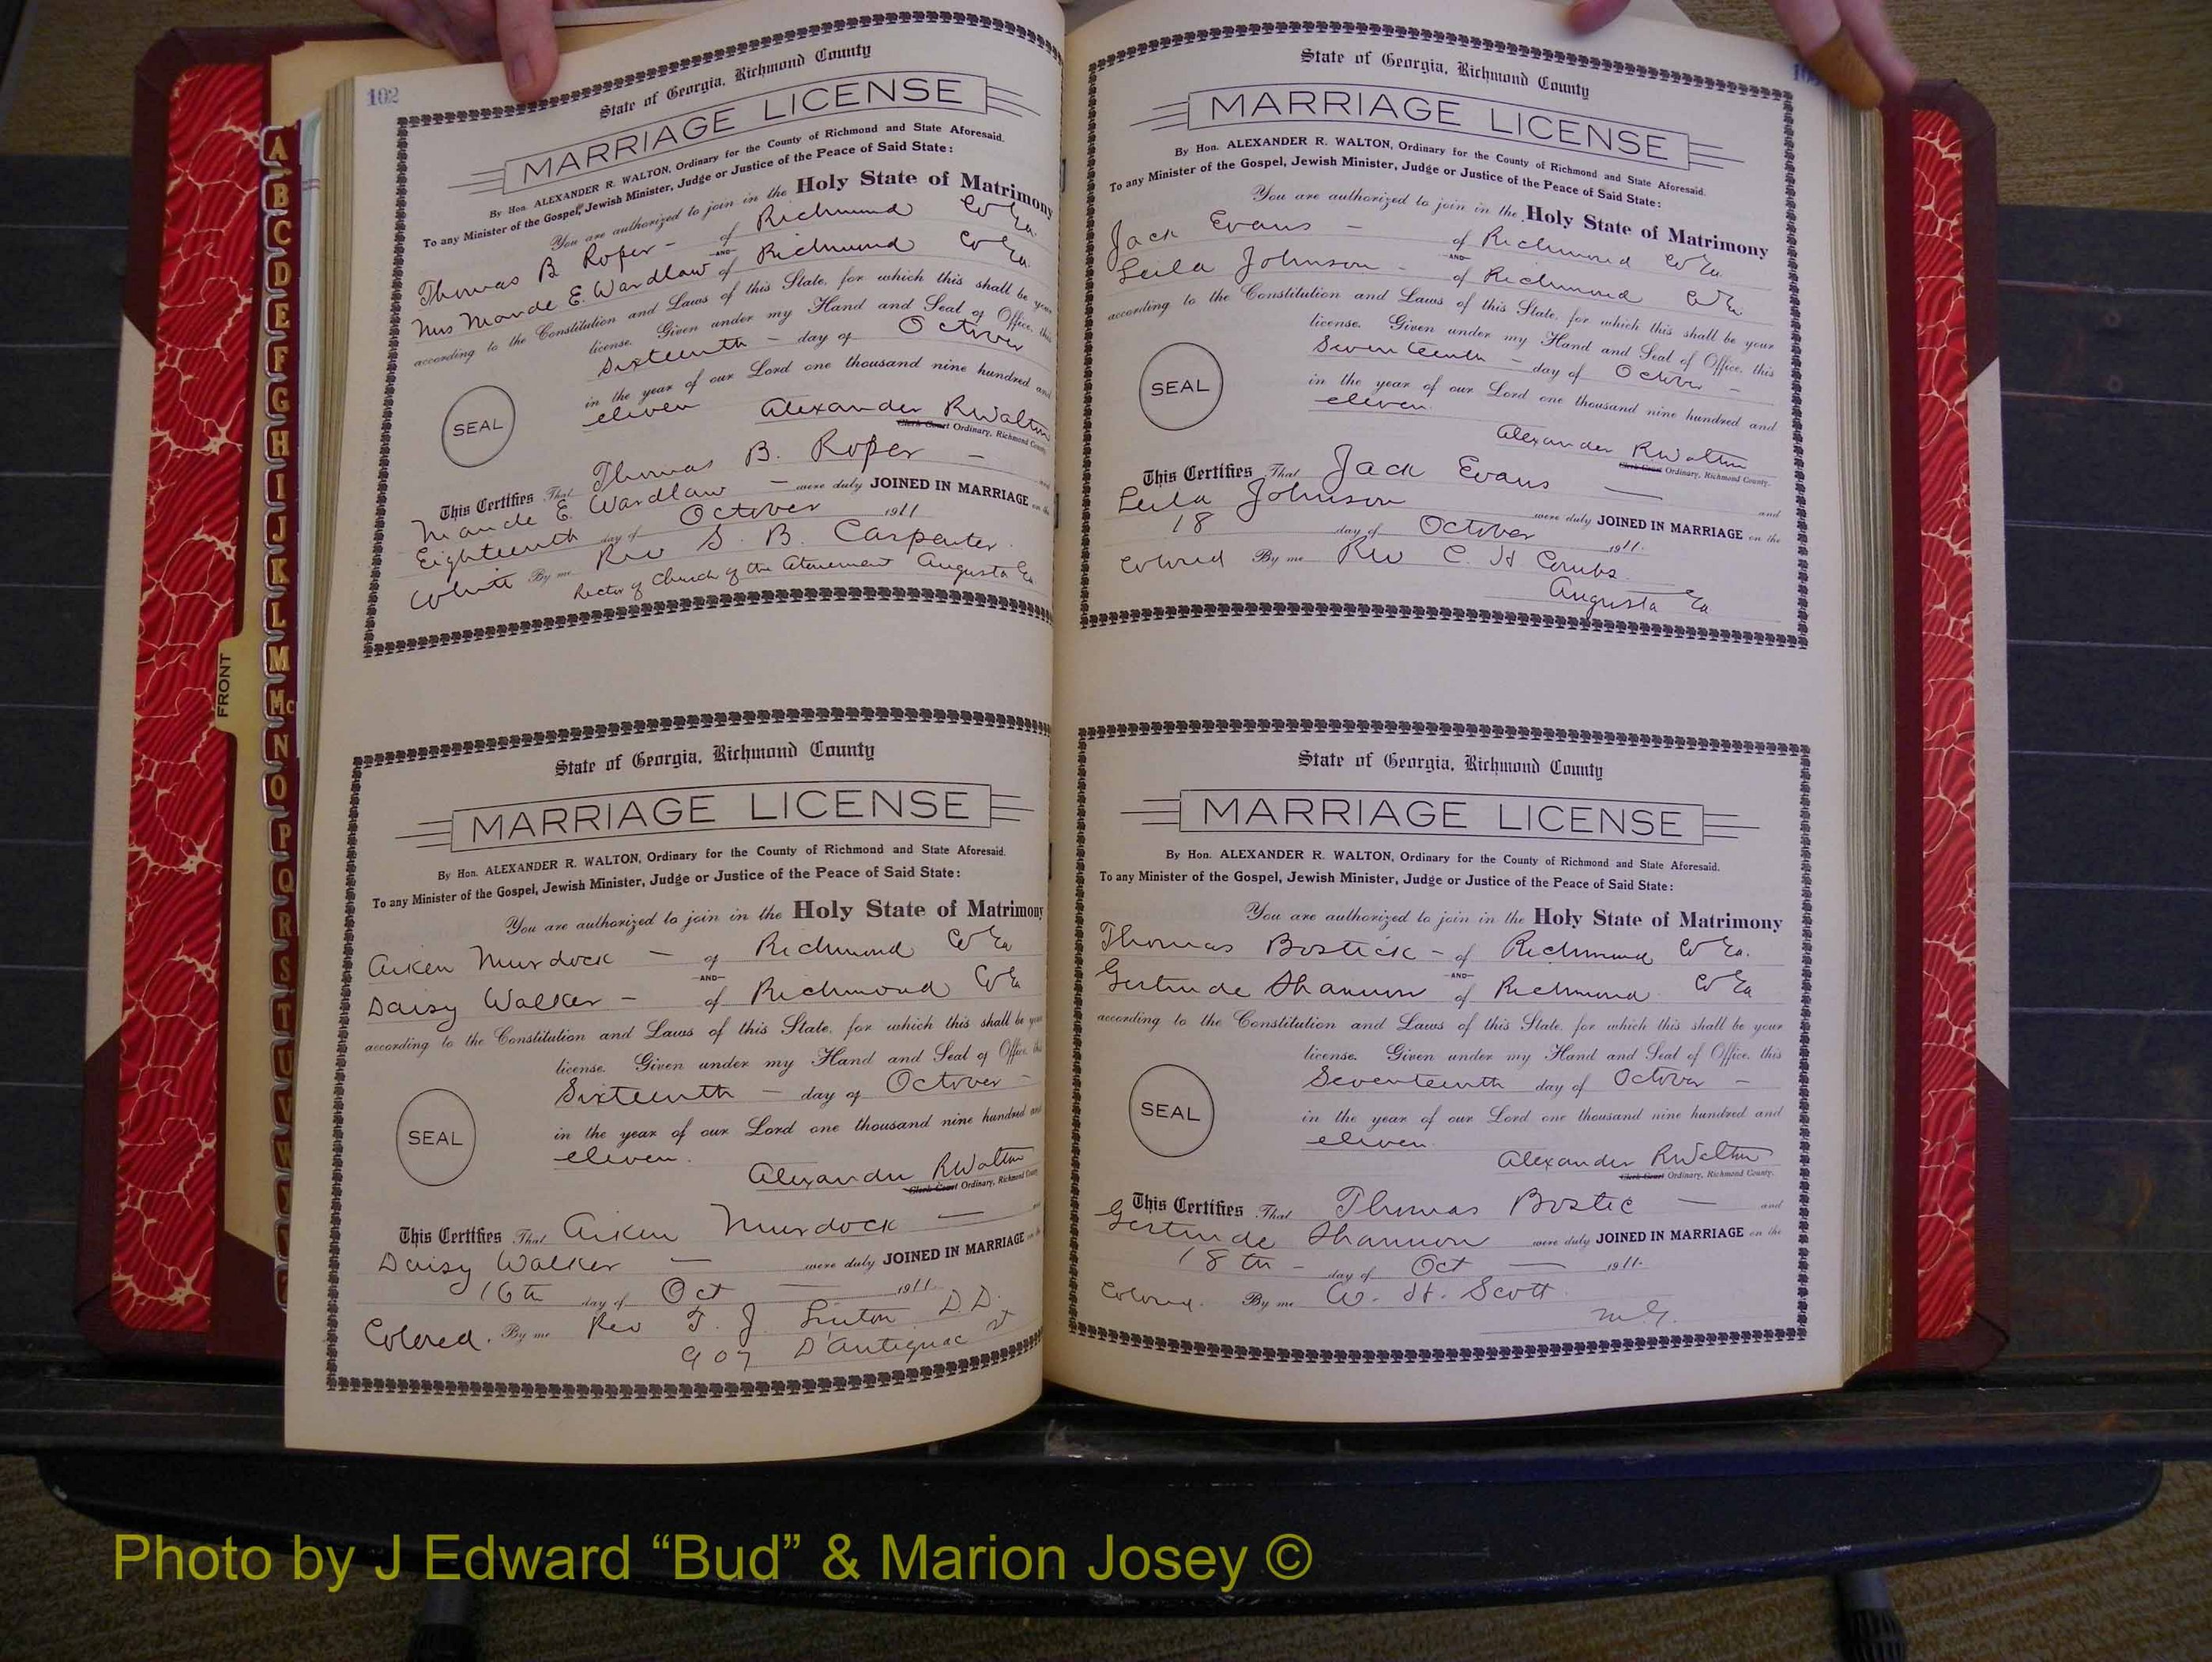 102
State of Georgia, Richmond County
MARRIAGE LICENSE
By Hon. ALEXANDER R. WALTON, Ordinary for the County of Richmond and State Aforesaid.
To any Minister of the Gospel, Jewish Minister, Judge or Justice of the Peace of Said State:
You are authorized to join in the Holy State of Matrimony
Thomas B Roper - of Richmond Co Ga.
-AND-
Mrs Maude E. Wardlaw of Richmond Co Ga.
according to the Constitution and Laws of this State, for which this shall be your
license. Given under my Hand and Seal of Office, this
Sixteenth - day of October
in the year of our Lord one thousand nine hundred and
eleven
SEAL
Alexander R Walton
Clerk Court Ordinary, Richmond County
This Certifies That Thomas B. Roper - and
Maude E. Wardlaw - were duly JOINED IN MARRIAGE on the
Eighteenth day of October 1911
White By me Rev S. B. Carpenter.
Rector of Church of the Atonement Augusta Ga
State of Georgia, Richmond County
MARRIAGE LICENSE
By Hon. ALEXANDER R. WALTON, Ordinary for the County of Richmond and State Aforesaid.
To any Minister of the Gospel, Jewish Minister, Judge or Justice of the Peace of Said State:
You are authorized to join in the Holy State of Matrimony
Aiken Murdock - of Richmond Co Ga
-AND-
Daisy Walker - of Richmond Co Ga
according to the Constitution and Laws of this State, for which this shall be your
license. Given under my Hand and Seal of Office, this
Sixteenth - day of October -
in the year of our Lord one thousand nine hundred and
eleven.
SEAL
Alexander R Walton
Clerk Court Ordinary, Richmond County
This Certifies That Aiken Murdock - and
Daisy Walker - were duly JOINED IN MARRIAGE on the
16th day of Oct - 1911.
Colored. By me Rev T. J. Linton D.D.
907 D'Antignac st
State of Georgia, Richmond County
MARRIAGE LICENSE
By Hon. ALEXANDER R. WALTON, Ordinary for the County of Richmond and State Aforesaid.
To any Minister of the Gospel, Jewish Minister, Judge or Justice of the Peace of Said State:
You are authorized to join in the Holy State of Matrimony
Jack Evans - of Richmond Co Ga
-AND-
Leila Johnson - of Richmond Co Ga
according to the Constitution and Laws of this State, for which this shall be your
license. Given under my Hand and Seal of Office, this
Seventeenth - day of October -
in the year of our Lord one thousand nine hundred and
eleven.
SEAL
Alexander R Walton
Clerk Court Ordinary, Richmond County.
This Certifies That Jack Evans - and
Leila Johnson were duly JOINED IN MARRIAGE on the
18 day of October 1911.
Colored By me Rev C. H Combs.
Augusta Ga
State of Georgia, Richmond County
MARRIAGE LICENSE
By Hon. ALEXANDER R. WALTON, Ordinary for the County of Richmond and State Aforesaid.
To any Minister of the Gospel, Jewish Minister, Judge or Justice of the Peace of Said State:
You are authorized to join in the Holy State of Matrimony
Thomas Bostick - of Richmond Co Ga.
-AND-
Gertrude Shannon of Richmond Co Ga
according to the Constitution and Laws of this State, for which this shall be your
license. Given under my Hand and Seal of Office, this
Seventeenth day of October -
in the year of our Lord one thousand nine hundred and
eleven.
SEAL
Alexander R Walton
Clerk Court Ordinary, Richmond County.
This Certifies That Thomas Bostic - and
Gertrude Shannon were duly JOINED IN MARRIAGE on the
18th - day of Oct - 1911.
Colored. By me W. H. Scott
M.G.
FRONT
A
B
C
D
E
F
G
H
I
J
K
L
M
Mc
N
O
P
Q
R
S
T
U
V
W
Photo by J Edward “Bud” & Marion Josey ©